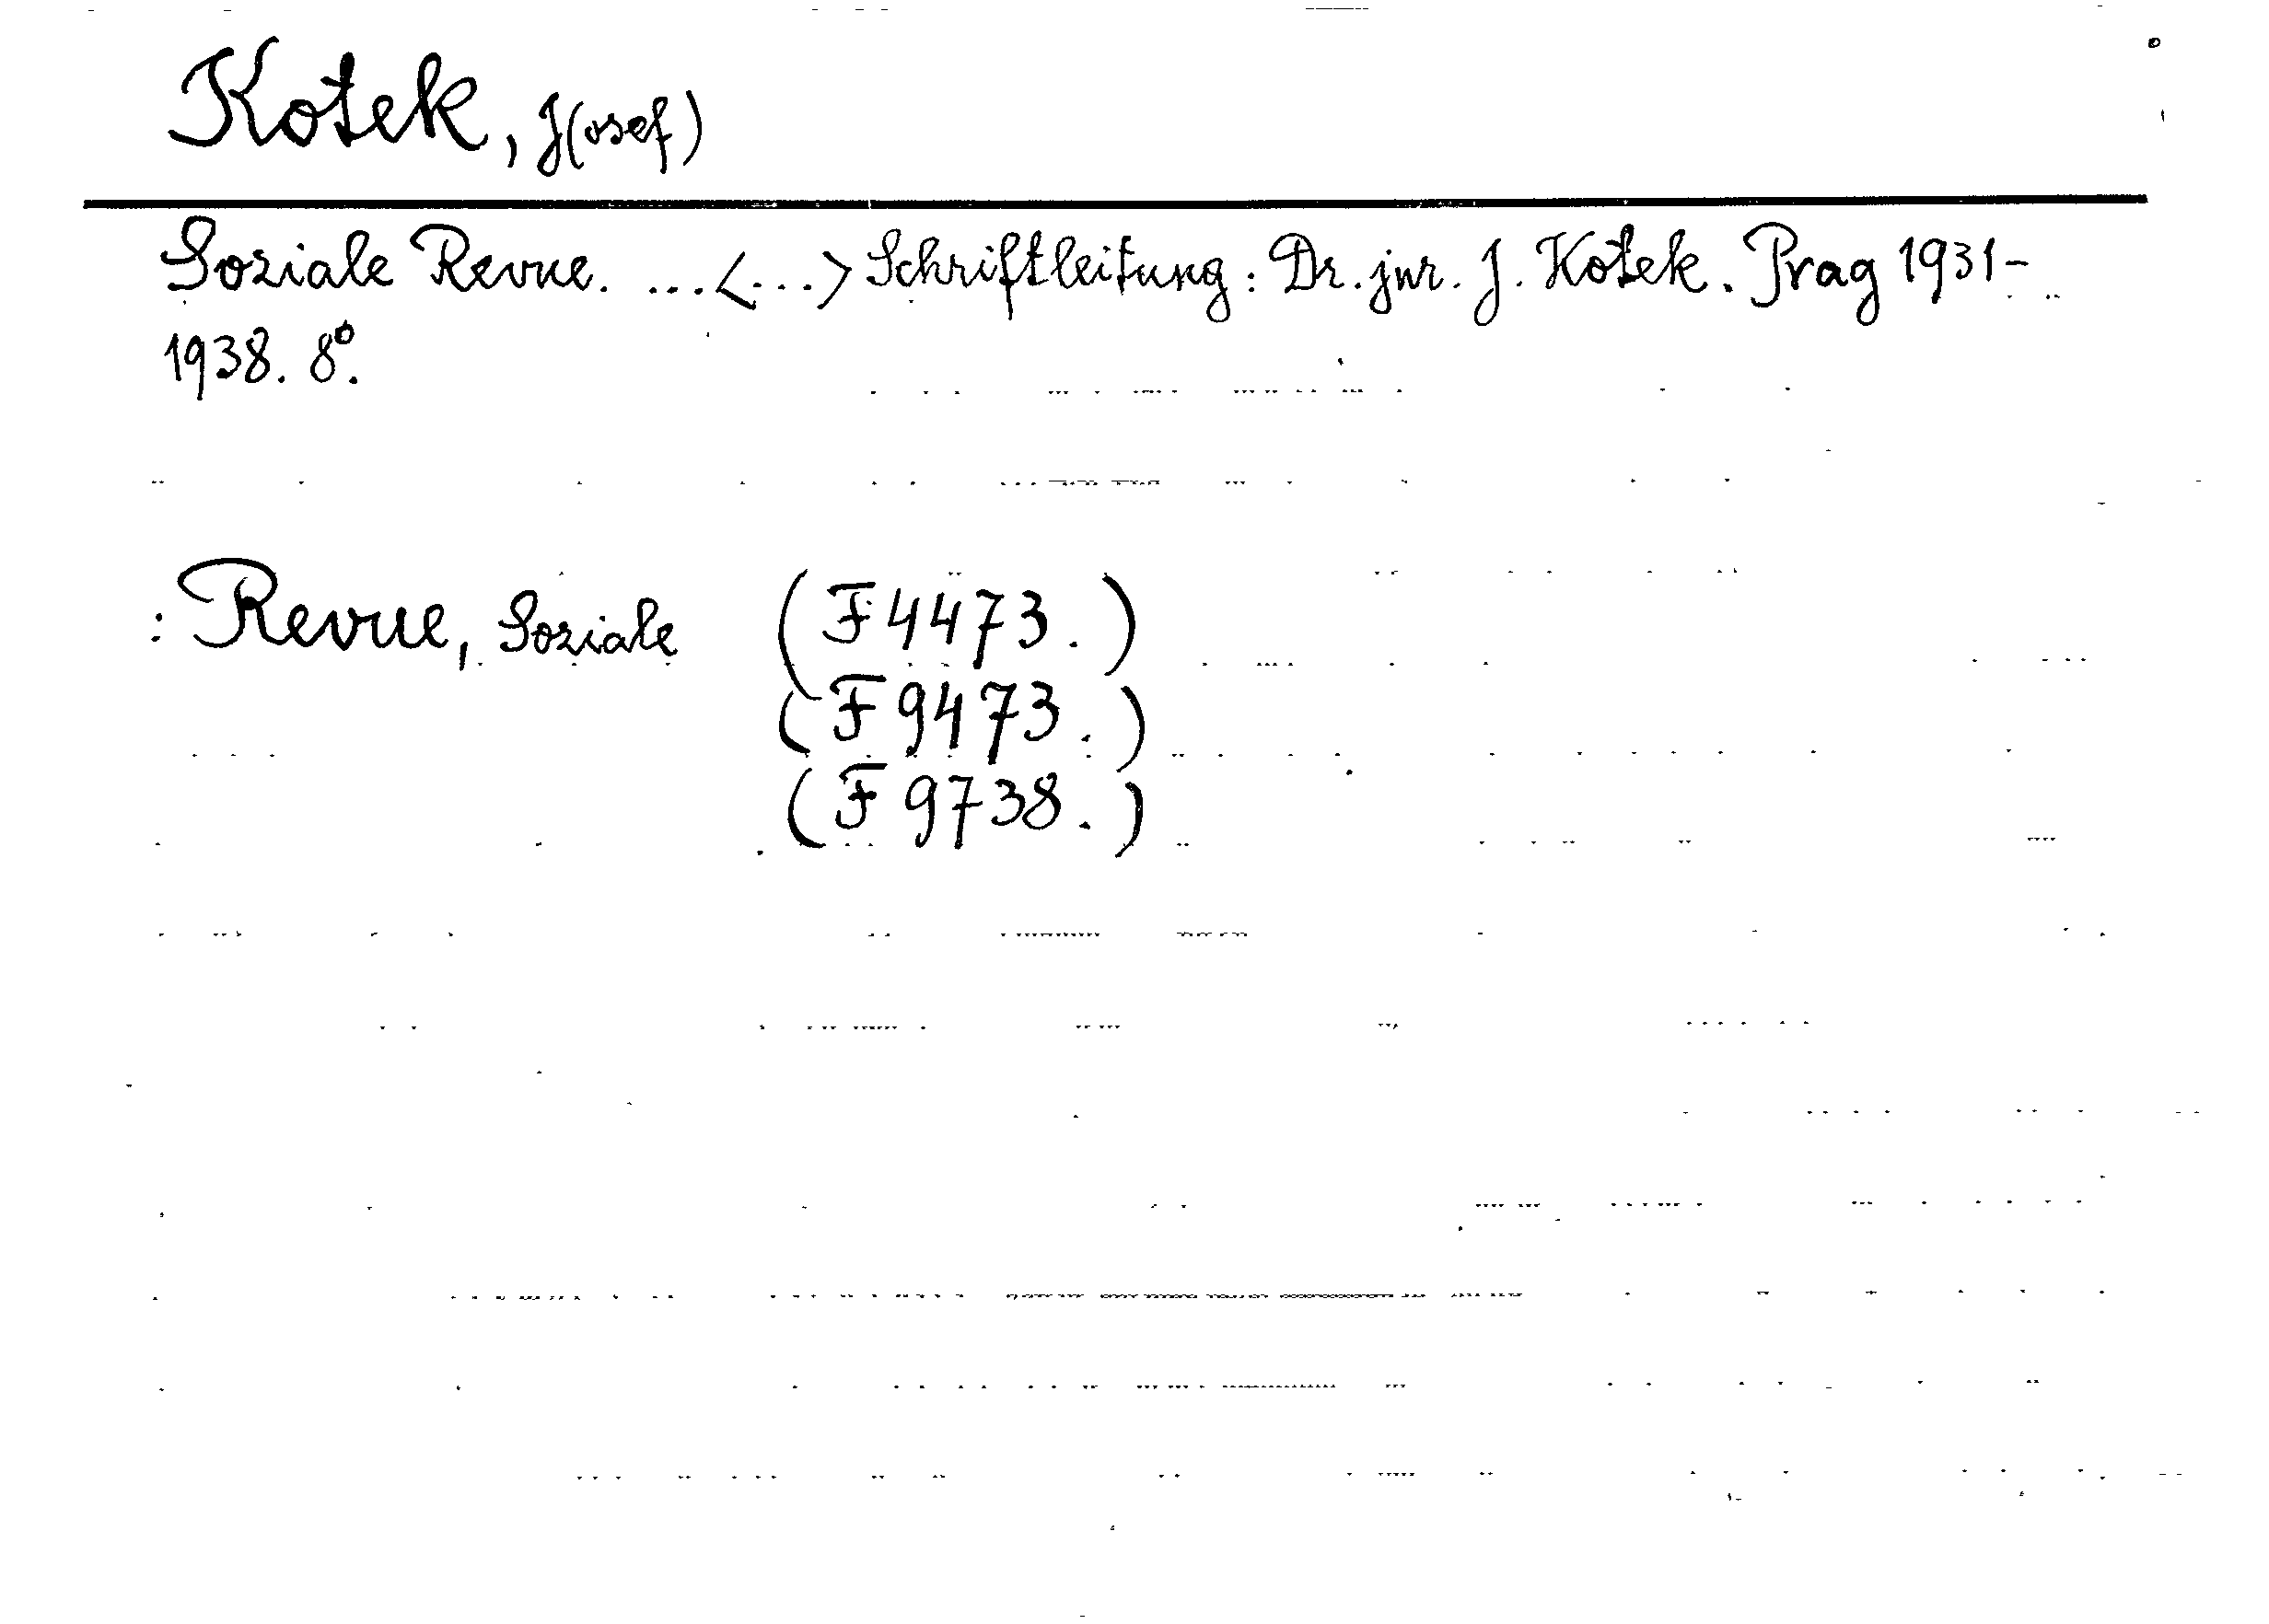 Kotek, J(osef)
Soziale Revue. ...<...> Schriftleitung: Dr. jur. J. Kotek. Prag 1931-
1938. 8°.
: Revue, Soziale (F 4473.)
(F 9473.)
(F 9738.)